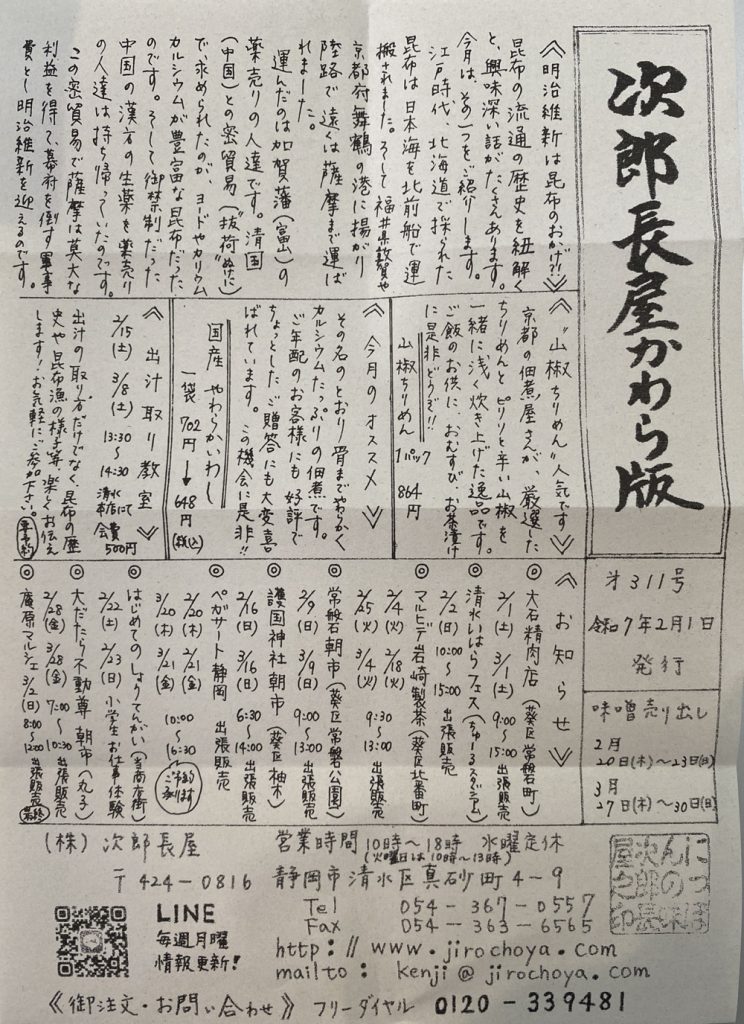 次郎長屋かわら版
第311号
令和7年2月1日
発行
味噌売り出し
2月
20日(木)~23日(日)
3月
27日(木)~30日(日)
《明治維新は昆布のおかげ!!》
昆布の流通の歴史を紐解く
と、興味深い話がたくさんあります。
今月は、その一つをご紹介します。
江戸時代、北海道で採られた
昆布は日本海を北前船で運
搬されました。そして福井県敦賀や
京都府舞鶴の港に揚がり
陸路で遠くは薩摩まで運ば
れました。
運んだのは加賀藩(富山)の
薬売りの人達です。清国
(中国)との密貿易(抜荷ぬけに)
で求められたのが、ヨードやカリウム
カルシウムが豊富な昆布だった
のです。そして御禁制だった
中国の漢方の生薬を薬売り
の人達は持ち帰っていたのです。
この密貿易で薩摩は莫大な
利益を得て、幕府を倒す軍事
費とし明治維新を迎えるのです。
《"山椒ちりめん"人気です》
京都の佃煮屋さんが、厳選した
ちりめんとピリリと辛い山椒を
一緒に浅く炊き上げた逸品です。
ご飯のお供に、おむすび、お茶漬け
に是非どうぞ!!
山椒ちりめん 1パック 864円
《今月のオススメ》
その名のとおり骨までやわらかく
カルシウムたっぷりの佃煮です。
ご年配のお客様にも好評で
ちょっとしたご贈答にも大変喜
ばれています。この機会に是非!!
国産 やわらかいわし
一袋 702円→648円(税込)
《出汁取り教室》
2/15(土) 3/8(土) 13:30~14:30 清水本店にて 会費500円
出汁の取り方だけでなく、昆布の歴
史や昆布漁の様子等、楽しくお伝え
します!お気軽にご参加下さい。要予約
《お知らせ》
◎大石精肉店(葵区常磐町)
2/1(土) 3/1(土) 9:00~15:00 出張販売
◎清水いはらフェス(ちゅ~るスタジアム)
2/2(日) 10:00~15:00 出張販売
◎マルヒデ岩崎製茶(葵区北番町)
2/4(火) 2/18(火)
2/25(火) 3/4(火) 9:30~13:00 出張販売
◎常磐朝市(葵区常磐公園)
2/9(日) 3/9(日) 9:00~13:00 出張販売
◎護国神社朝市(葵区柚木)
2/16(日) 3/16(日) 6:30~14:00 出張販売
◎ペガサート静岡 出張販売
2/20(木) 2/21(金)
3/20(木) 3/21(金) 10:00~16:30
◎はじめてのしょうてんがい
2/22(土) 2/23(日) 小学生お仕事体験
◎大だたら不動尊 朝市(丸子)
2/28(金) 3/28(金) 7:00~10:30 出張販売
◎庵原マルシェ 3/2(日) 8:00~12:00 出張販売
(株)次郎長屋
営業時間 10時~18時 水曜定休
(火曜日は10時~13時)
〒424-0816 静岡市清水区真砂町4-9
LINE
毎週月曜
情報更新!
Tel 054-367-0557
Fax 054-363-6565
http://www.jirochoya.com
mailto: kenji@jirochoya.com
《御注文・お問い合わせ》 フリーダイヤル 0120-339481